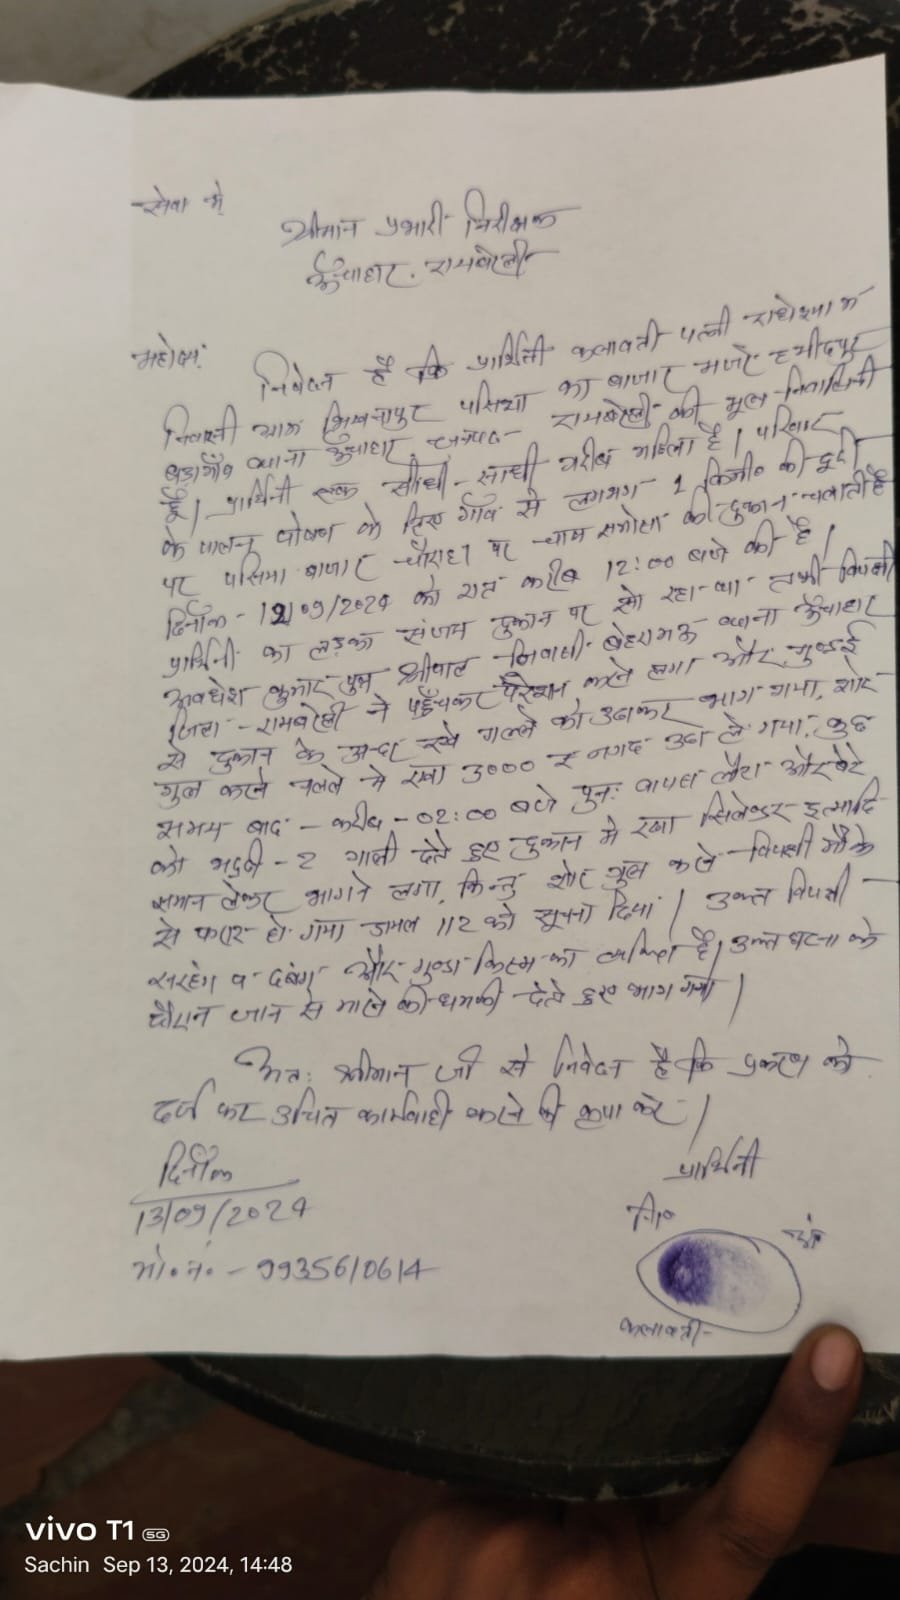 सेवा में
श्रीमान प्रभारी निरीक्षक
ऊँचाहार, रायबरेली
महोदय,
निवेदन है कि प्रार्थिनी कलावती पत्नी राधेश्याम
निवासी ग्राम भिखनापुर पसिया का बाजार मजरे हमीदपुर
बड़ागाँव थाना ऊँचाहार जनपद - रायबरेली की मूल निवासिनी
हूँ। प्रार्थिनी एक सीधी - साधी गरीब महिला है। परिवार
के पालन पोषण के लिए गाँव से लगभग 1 किमी० की दूरी
पर पसिया बाजार चौराहा पर चाय समोसा की दुकान चलाती है
दिनाँक - 12/09/2024 को रात करीब 12:00 बजे की है।
प्रार्थिनी का लड़का संजय दुकान पर सो रहा था तभी विपक्षी
अवधेश कुमार पुत्र श्रीपाल निवासी थाना ऊँचाहार
जिला - रायबरेली ने पहुँचकर परेशान करने लगा और गुण्डई
से दुकान के अन्दर रखे गल्ले को उठाकर भाग गया, शोर
गुल करने गल्ले मे रखा 3000 रु नगद उठा ले गया, कुछ
समय बाद - करीब - 02:00 बजे पुनः वापस लौटा और बेटे
को भद्दी - 2 गाली देते हुए दुकान मे रखा सिलेण्डर इत्यादि
समान लेकर भागने लगा, किन्तु शोर गुल करने विपक्षी मौके
से फरार हो गया डायल 112 को सूचना दिया। उक्त विपक्षी
सरहंग व दबंग और गुण्डा किस्म का व्यक्ति है। उक्त घटना के
दौरान जान से मारने की धमकी देते हुए भाग गया।
अतः श्रीमान जी से निवेदन है कि प्रकरण को
दर्ज कर उचित कार्यवाही करने की कृपा करे।
दिनाँक
13/09/2024
मो.नं. - 9935610614
प्रार्थिनी
नि०
अं०
कलावती
vivo T1 5G
Sachin Sep 13, 2024, 14:48